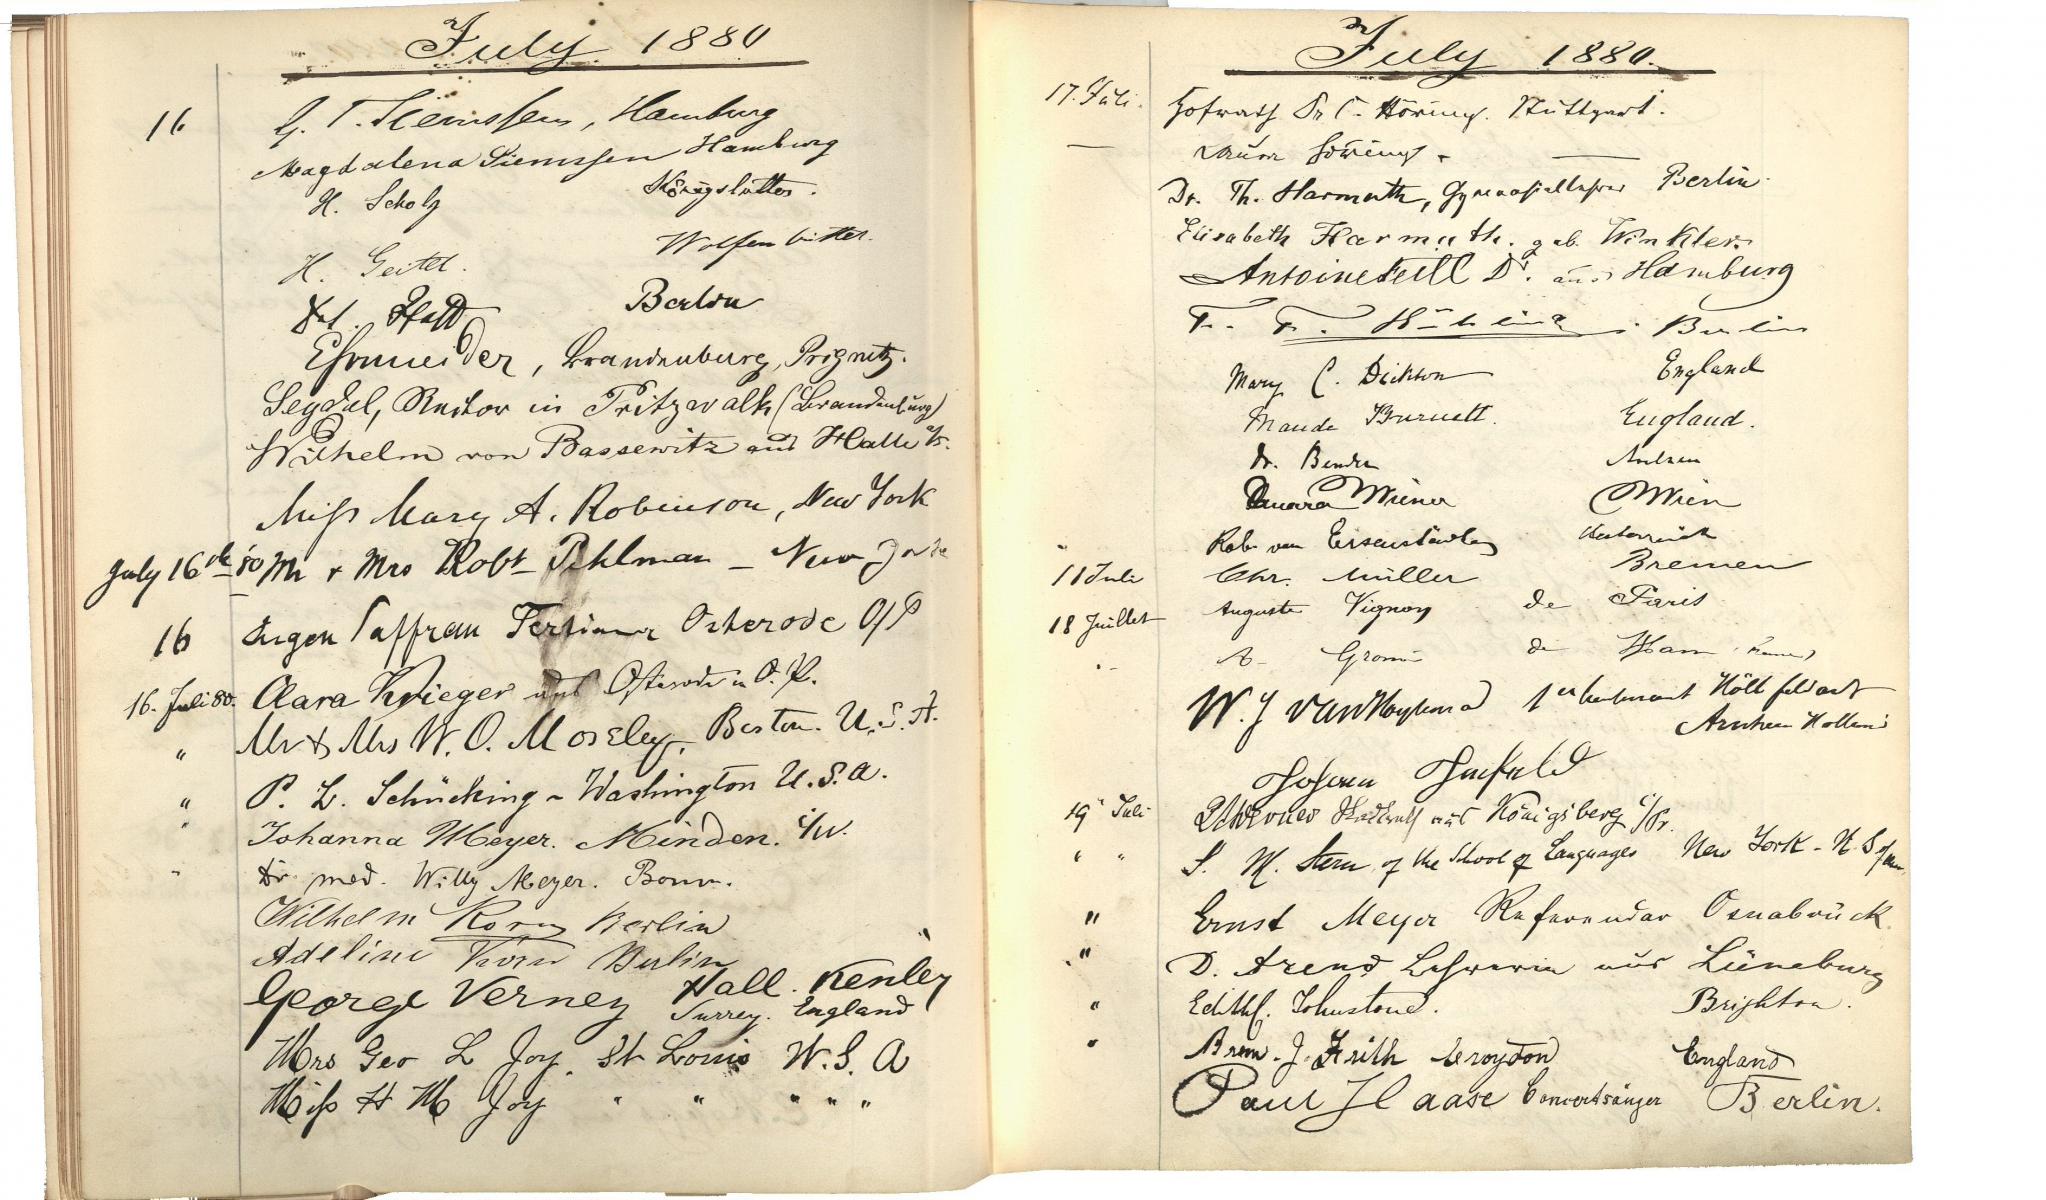 July 1880
16
G. T. Siemssen, Hamburg
Magdalena Siemssen Hamburg
H. Scholz Königslutter.
H. Geitel. Wolfenbüttel.
Berlin
Schneider, Brandenburg, Prignitz.
Seydel, Rector in Pritzwalk (Brandenburg)
Wilhelm von Bassewitz aus Halle a/S.
Miss Mary A. Robinson, New York
July 16th 80 Mr & Mrs Robt Pehlman – New York
16 Eugen Saffran Tertianer Osterode O/P
16. Juli 80. Clara Krieger aus Osterode in O. P.
" Mr & Mrs W. O. Mosely, Boston. U.S.A.
" P. L. Schücking – Washington U.S.A.
" Johanna Meyer. Minden. i/W.
" Dr med. Willy Meyer. Bonn.
Wilhelm Korn Berlin
Adeline Korn Berlin
George Verney Hall. Kenley
Surrey. England
Mrs Geo L Joy. St Louis U.S. A
Miss H M Joy " " " " "
July 1880.
17. Juli. Hofrath Dr C. Höring. Stuttgart.
Höring.
Dr. Th. Harmuth, Gymnasiallehrer Berlin.
Elisabeth Harmuth. geb. Winkler.
Antoine Feill Dr. aus Hamburg
Berlin
Mary C. Dickson England
Maude Burnett. England.
Dr. Bender
Wiener Wien
Rob. von Oesterreich
11 Juli Chr. Müller Bremen
18 Juillet Auguste Vignon de Paris
de Ham
W. J. van 1er Lieutenant Holl
Arnhem Holland
19 Juli aus Königsberg i/Pr.
" " S. M. Stern of the School of Languages New York - U. S. of Am.
" Ernst Meyer Referendar Osnabrück.
" D. Arend Lehrerin aus Lüneburg
" Edith C. Johnstone. Brighton.
" J. Frith Croydon England
Paul Haase Concertsänger Berlin.